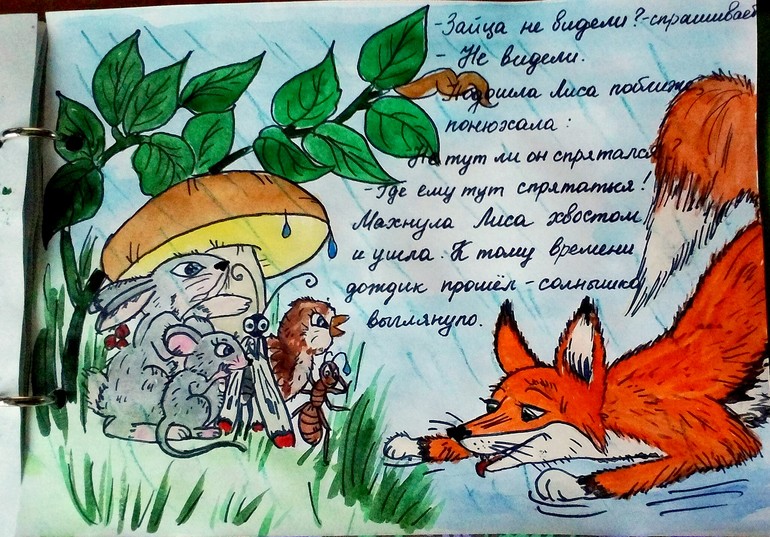 -Зайца не видели?-спрашивает
- Не видели.
Подошла Лиса поближе,
понюхала:
-Не тут ли он спрятался?
-Где ему тут спрятаться!
Махнула Лиса хвостом
и ушла. К тому времени
дождик прошёл-солнышко
выглянуло.